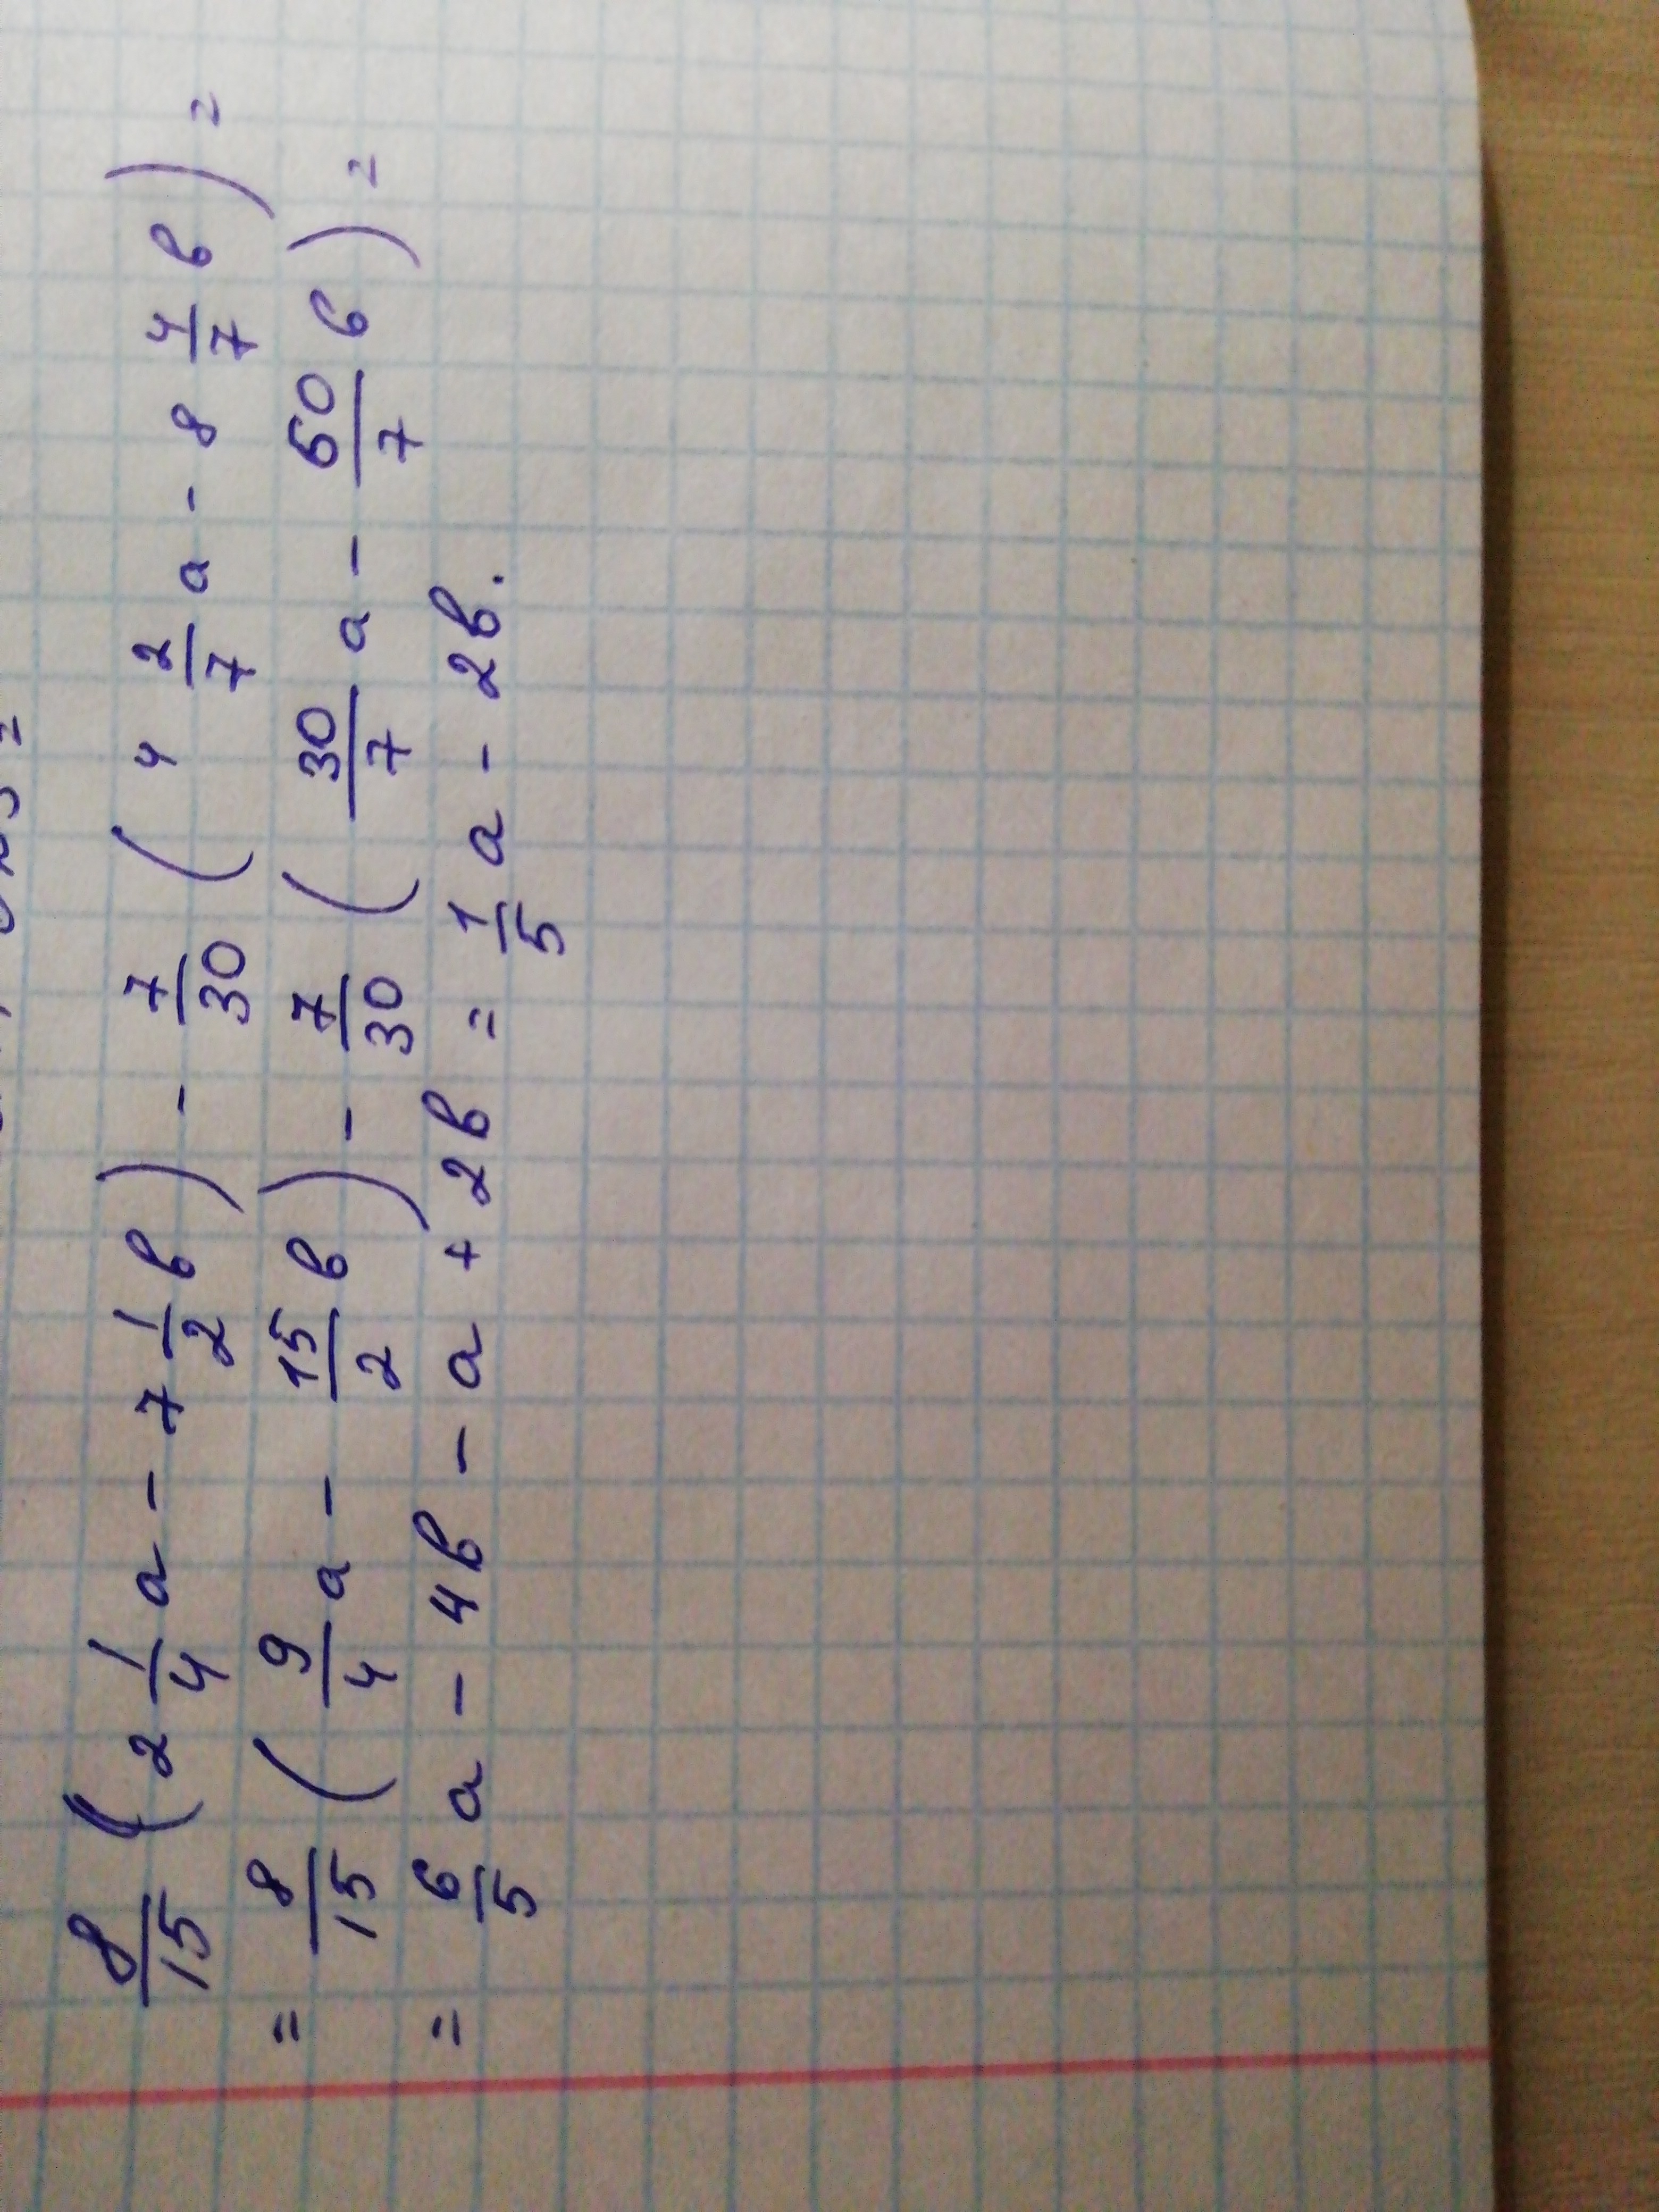 8/15 (2 1/4 a - 7 1/2 в) - 7/30 (4 2/7 a - 8 4/7 в) =
= 8/15 (9/4 a - 15/2 в) - 7/30 (30/7 a - 60/7 в) =
= 6/5 a - 4в - a + 2в = 1/5 a - 2в.